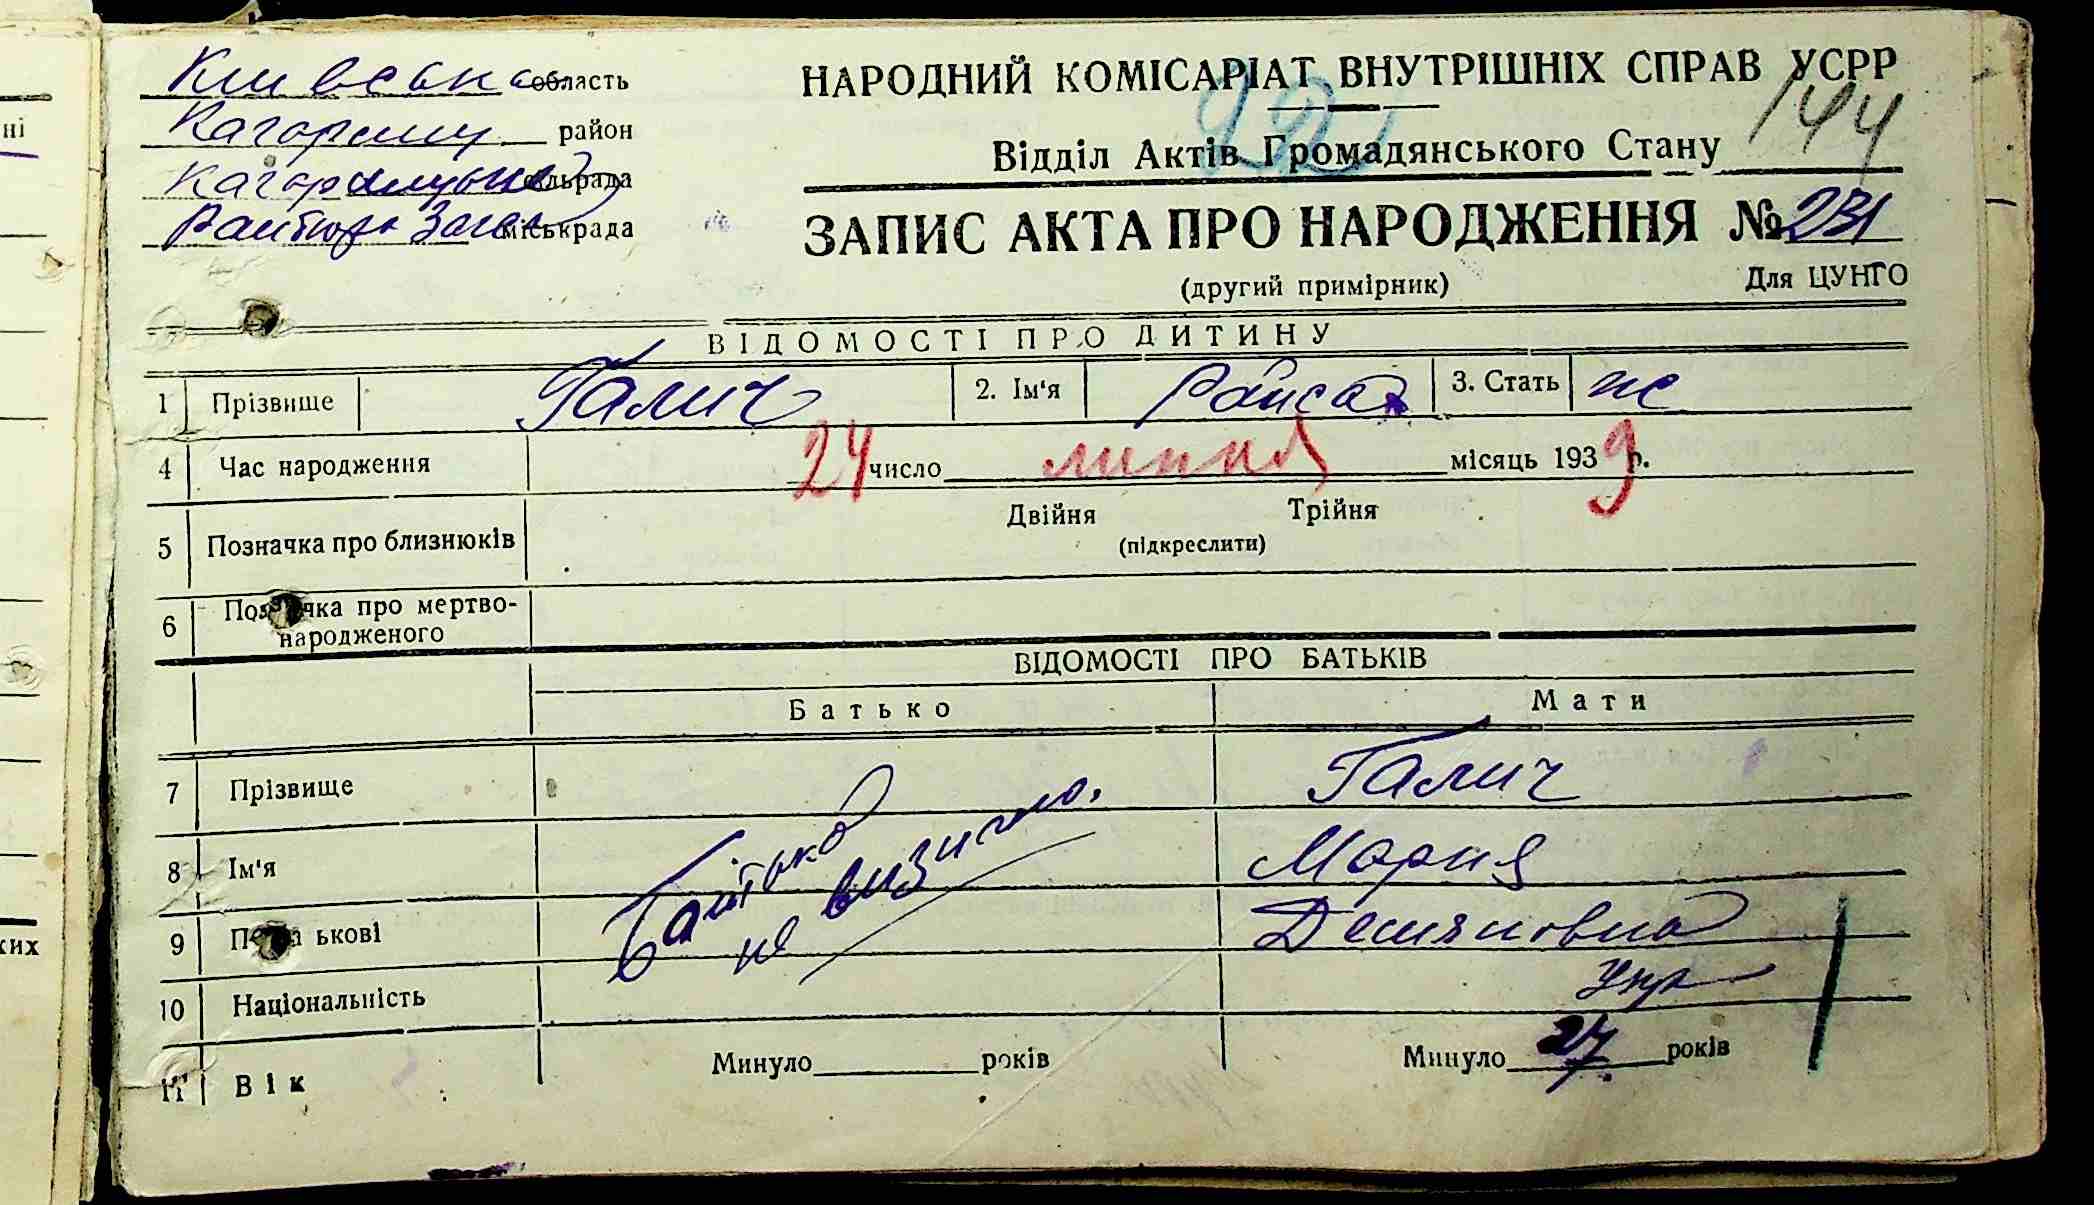 Київська область
Кагарлицьк район
Кагарлицька сільрада
міськрада
НАРОДНИЙ КОМІСАРІАТ ВНУТРІШНІХ СПРАВ УСРР
144
Відділ Актів Громадянського Стану
ЗАПИС АКТА ПРО НАРОДЖЕННЯ № 231
(другий примірник) Для ЦУНГО
ВІДОМОСТІ ПРО ДИТИНУ
1 Прізвище Галич 2. Ім'я Раиса 3. Стать ж
4 Час народження 24 число липня місяць 1939 р.
5 Позначка про близнюків Двійня Трійня
(підкреслити)
6 Позначка про мертво-
народженого
ВІДОМОСТІ ПРО БАТЬКІВ
Батько Мати
7 Прізвище Галич
8 Ім'я Мария
9 По батькові Демяновна
Батько
не визнано.
10 Національність Укр
11 Вік Минуло років Минуло 27 років
ні
ких